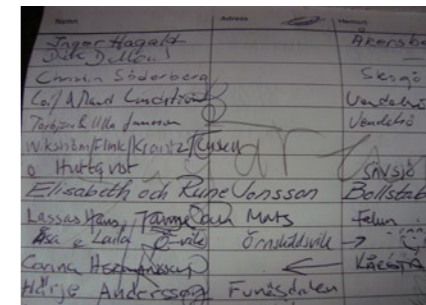 Namn Adress Hemort
Inger Hagald Åkersbe
Dick Dellow
Christin Söderberg Skogö
Leif & Maud Lindström Vendelsö
Torbjörn & Ulla Jansson Vendelsö
Wikström/Flink/Krantz/
o Hultqvist Gnvsjö
Elisabeth och Rune Jonsson Bollstab
Lassas Hans, Tamme och Mats Falun
Åsa o Laila Ö-vik Örnsköldsvik →
Carina Hermansson ←
Härje Andersson Funäsdalen